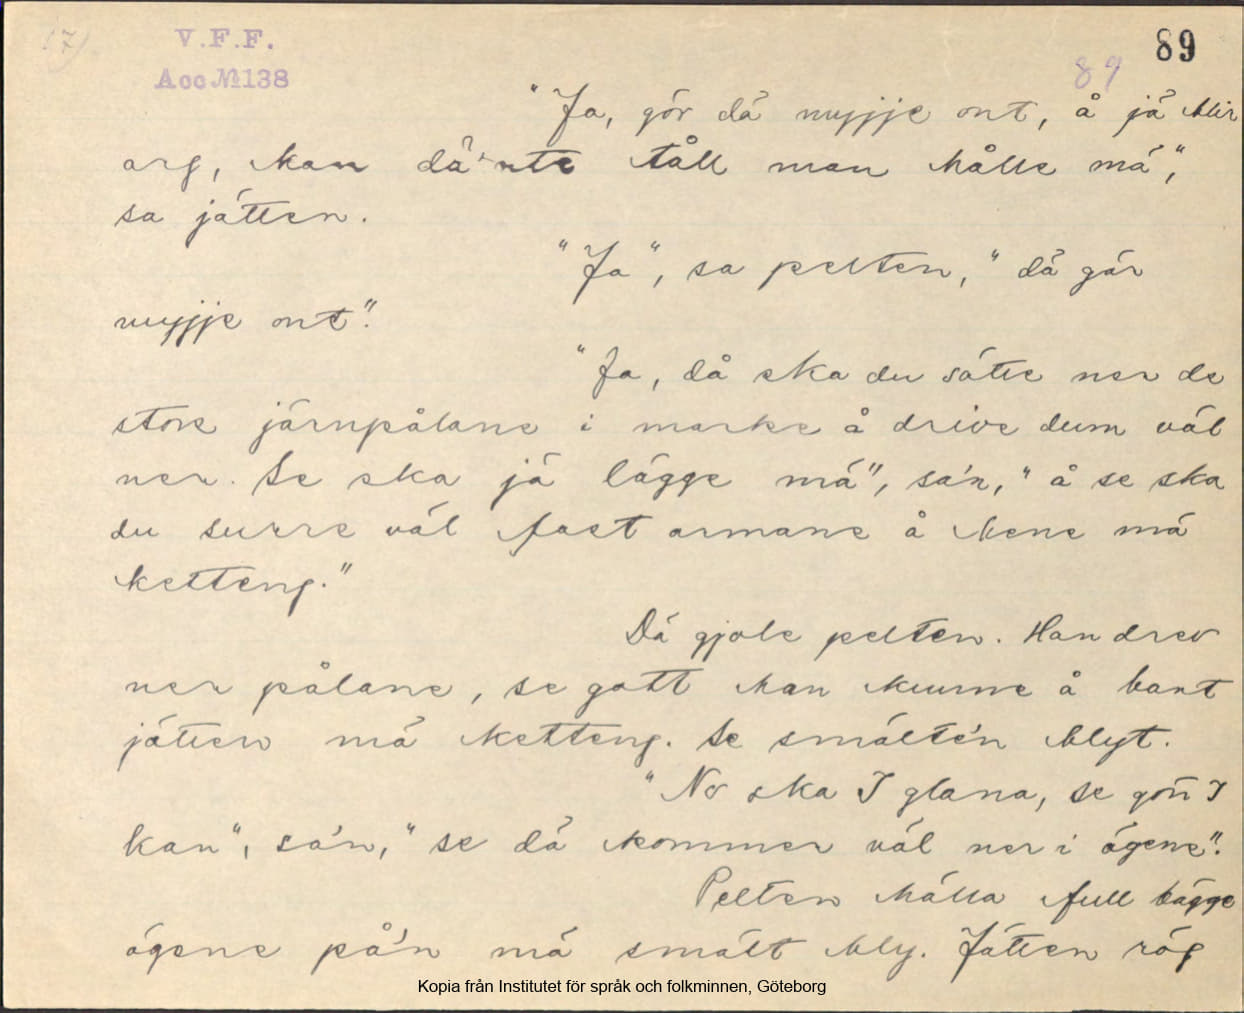 17)
V.F.F.
Acc № 138
89
89
"Ja, gör dä myjje ont, å jä blir
arg, kan dä'nte tåll man hålle mä",
sa jätten.
"Ja", sa pelten, "dä gör
myjje ont".
"Ja, då ska du sätte ner de
store järnpålane i marke å drive dum väl
ner. Se ska jä lägge mä", sa'n, "å se ska
du surre väl fast armane å bene mä
ketteng."
Dä gjole pelten. Han drev
ner pålane, se gott han kunne å bant
jätten mä ketteng. Se smälte'n blyt.
"No ska I glana, se gott I
kan", sa'n, "se dä kommer väl ner i ögene".
Pelten hälla full bägge
ögene på'n mä smält bly. Jätten rög
Kopia från Institutet för språk och folkminnen, Göteborg